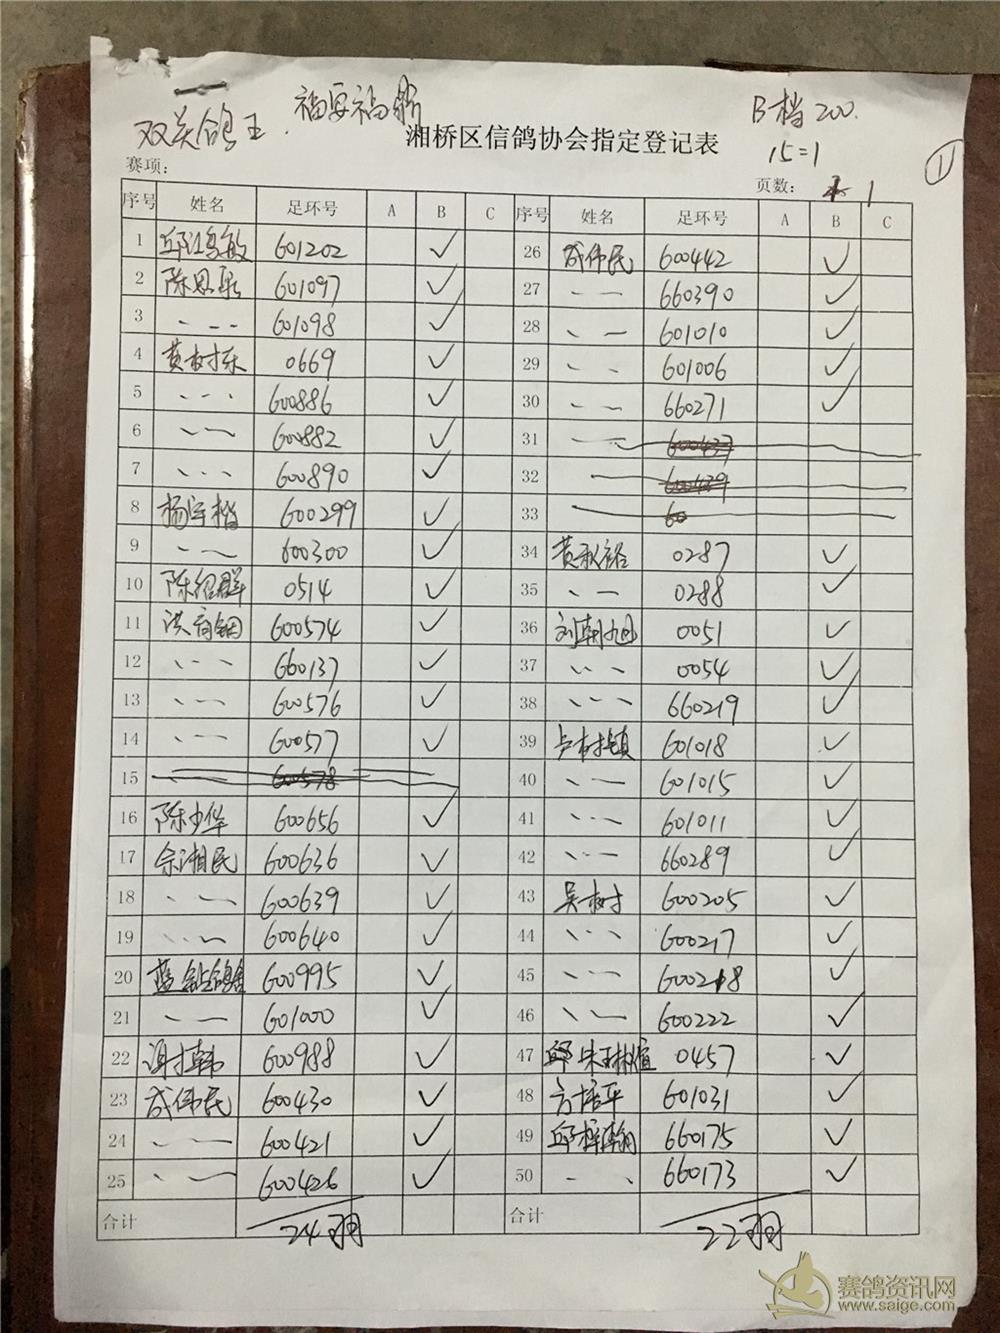 双关鸽王 福安福鼎 B档200
湘桥区信鸽协会指定登记表 15=1 ①
赛项: 页数: 1
序号 姓名 足环号 A B C 序号 姓名 足环号 A B C
1 601202 ✓ 26 成伟民 600442 ✓
2 陈恩 601097 ✓ 27 〃 660390 ✓
3 〃 601098 ✓ 28 〃 601010 ✓
4 黄树东 0669 ✓ 29 〃 601006 ✓
5 〃 600886 ✓ 30 〃 660271 ✓
6 〃 600882 ✓ 31 〃 600437
7 〃 600890 ✓ 32 〃 600439
8 杨宇楷 600299 ✓ 33 〃 60
9 〃 600300 ✓ 34 黄 0287 ✓
10 陈绍群 0514 ✓ 35 〃 0288 ✓
11 洪 600574 ✓ 36 刘朝旭 0051 ✓
12 〃 660137 ✓ 37 〃 0054 ✓
13 〃 600576 ✓ 38 〃 660219 ✓
14 〃 600577 ✓ 39 卢树镇 601018 ✓
15 〃 600578 40 〃 601015 ✓
16 陈少华 600656 ✓ 41 〃 601011 ✓
17 余湘民 600636 ✓ 42 〃 660289 ✓
18 〃 600639 ✓ 43 吴树 600205 ✓
19 〃 600640 ✓ 44 〃 600217 ✓
20 蓝 鸽舍 600995 ✓ 45 〃 600218 ✓
21 〃 601000 ✓ 46 〃 600222 ✓
22 谢 600988 ✓ 47 邱 0457 ✓
23 成伟民 600430 ✓ 48 方 平 601031 ✓
24 〃 600421 ✓ 49 邱梓瀚 660175 ✓
25 〃 600426 ✓ 50 〃 660173 ✓
合计 24羽 合计 22羽
赛鸽资讯网
www.saige.com